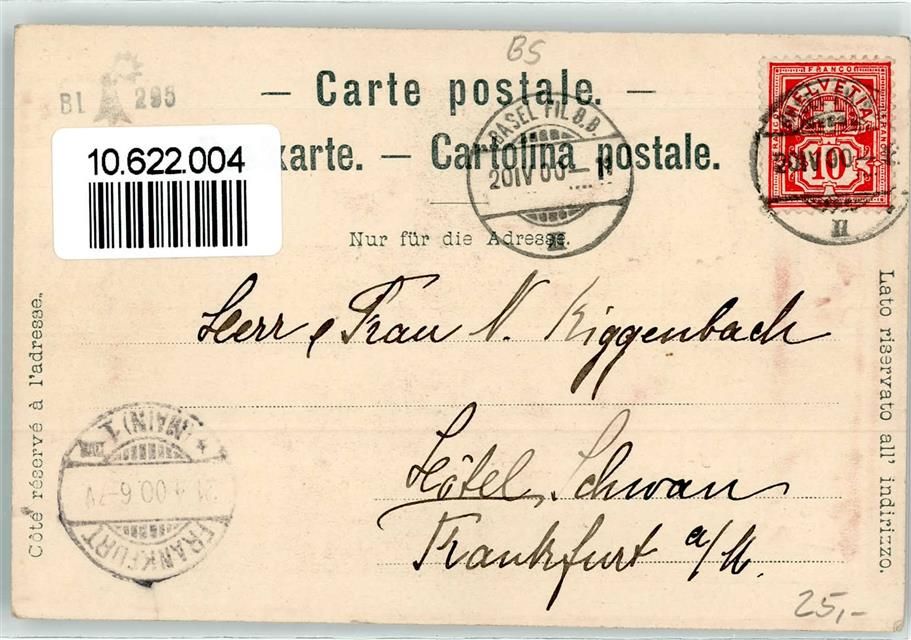 BS
BL 295
— Carte postale. —
10.622.004
karte. — Cartolina postale.
FRANCO
HELVETIA
10
20 IV 00
II
BASEL FIL. B.B.
20 IV 00
II
Nur für die Adresse.
Herr & Frau N. Riggenbach
Hôtel Schwan
Frankfurt a/M.
Côté réservé à l'adresse.
Lato riservato all' indirizzo.
FRANKFURT
* (MAIN) 1
4 00 6-7V
25,-